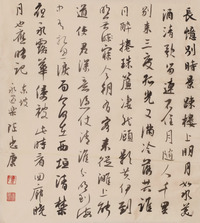 長憶別時景疎樓上明月如水美
酒清歌留連不住月隨人千里
別來三度孤光又滿冷落共誰
同醉捲珠簾淒然顧影共伊到
明無寐今朝有客來從濉上能
道使君深意憑仗清淮分明到海
中有相思淚而今何在西垣清禁
夜永露華侵被此時看回廊曉
月也應暗記 東坡
永遇樂 忠康